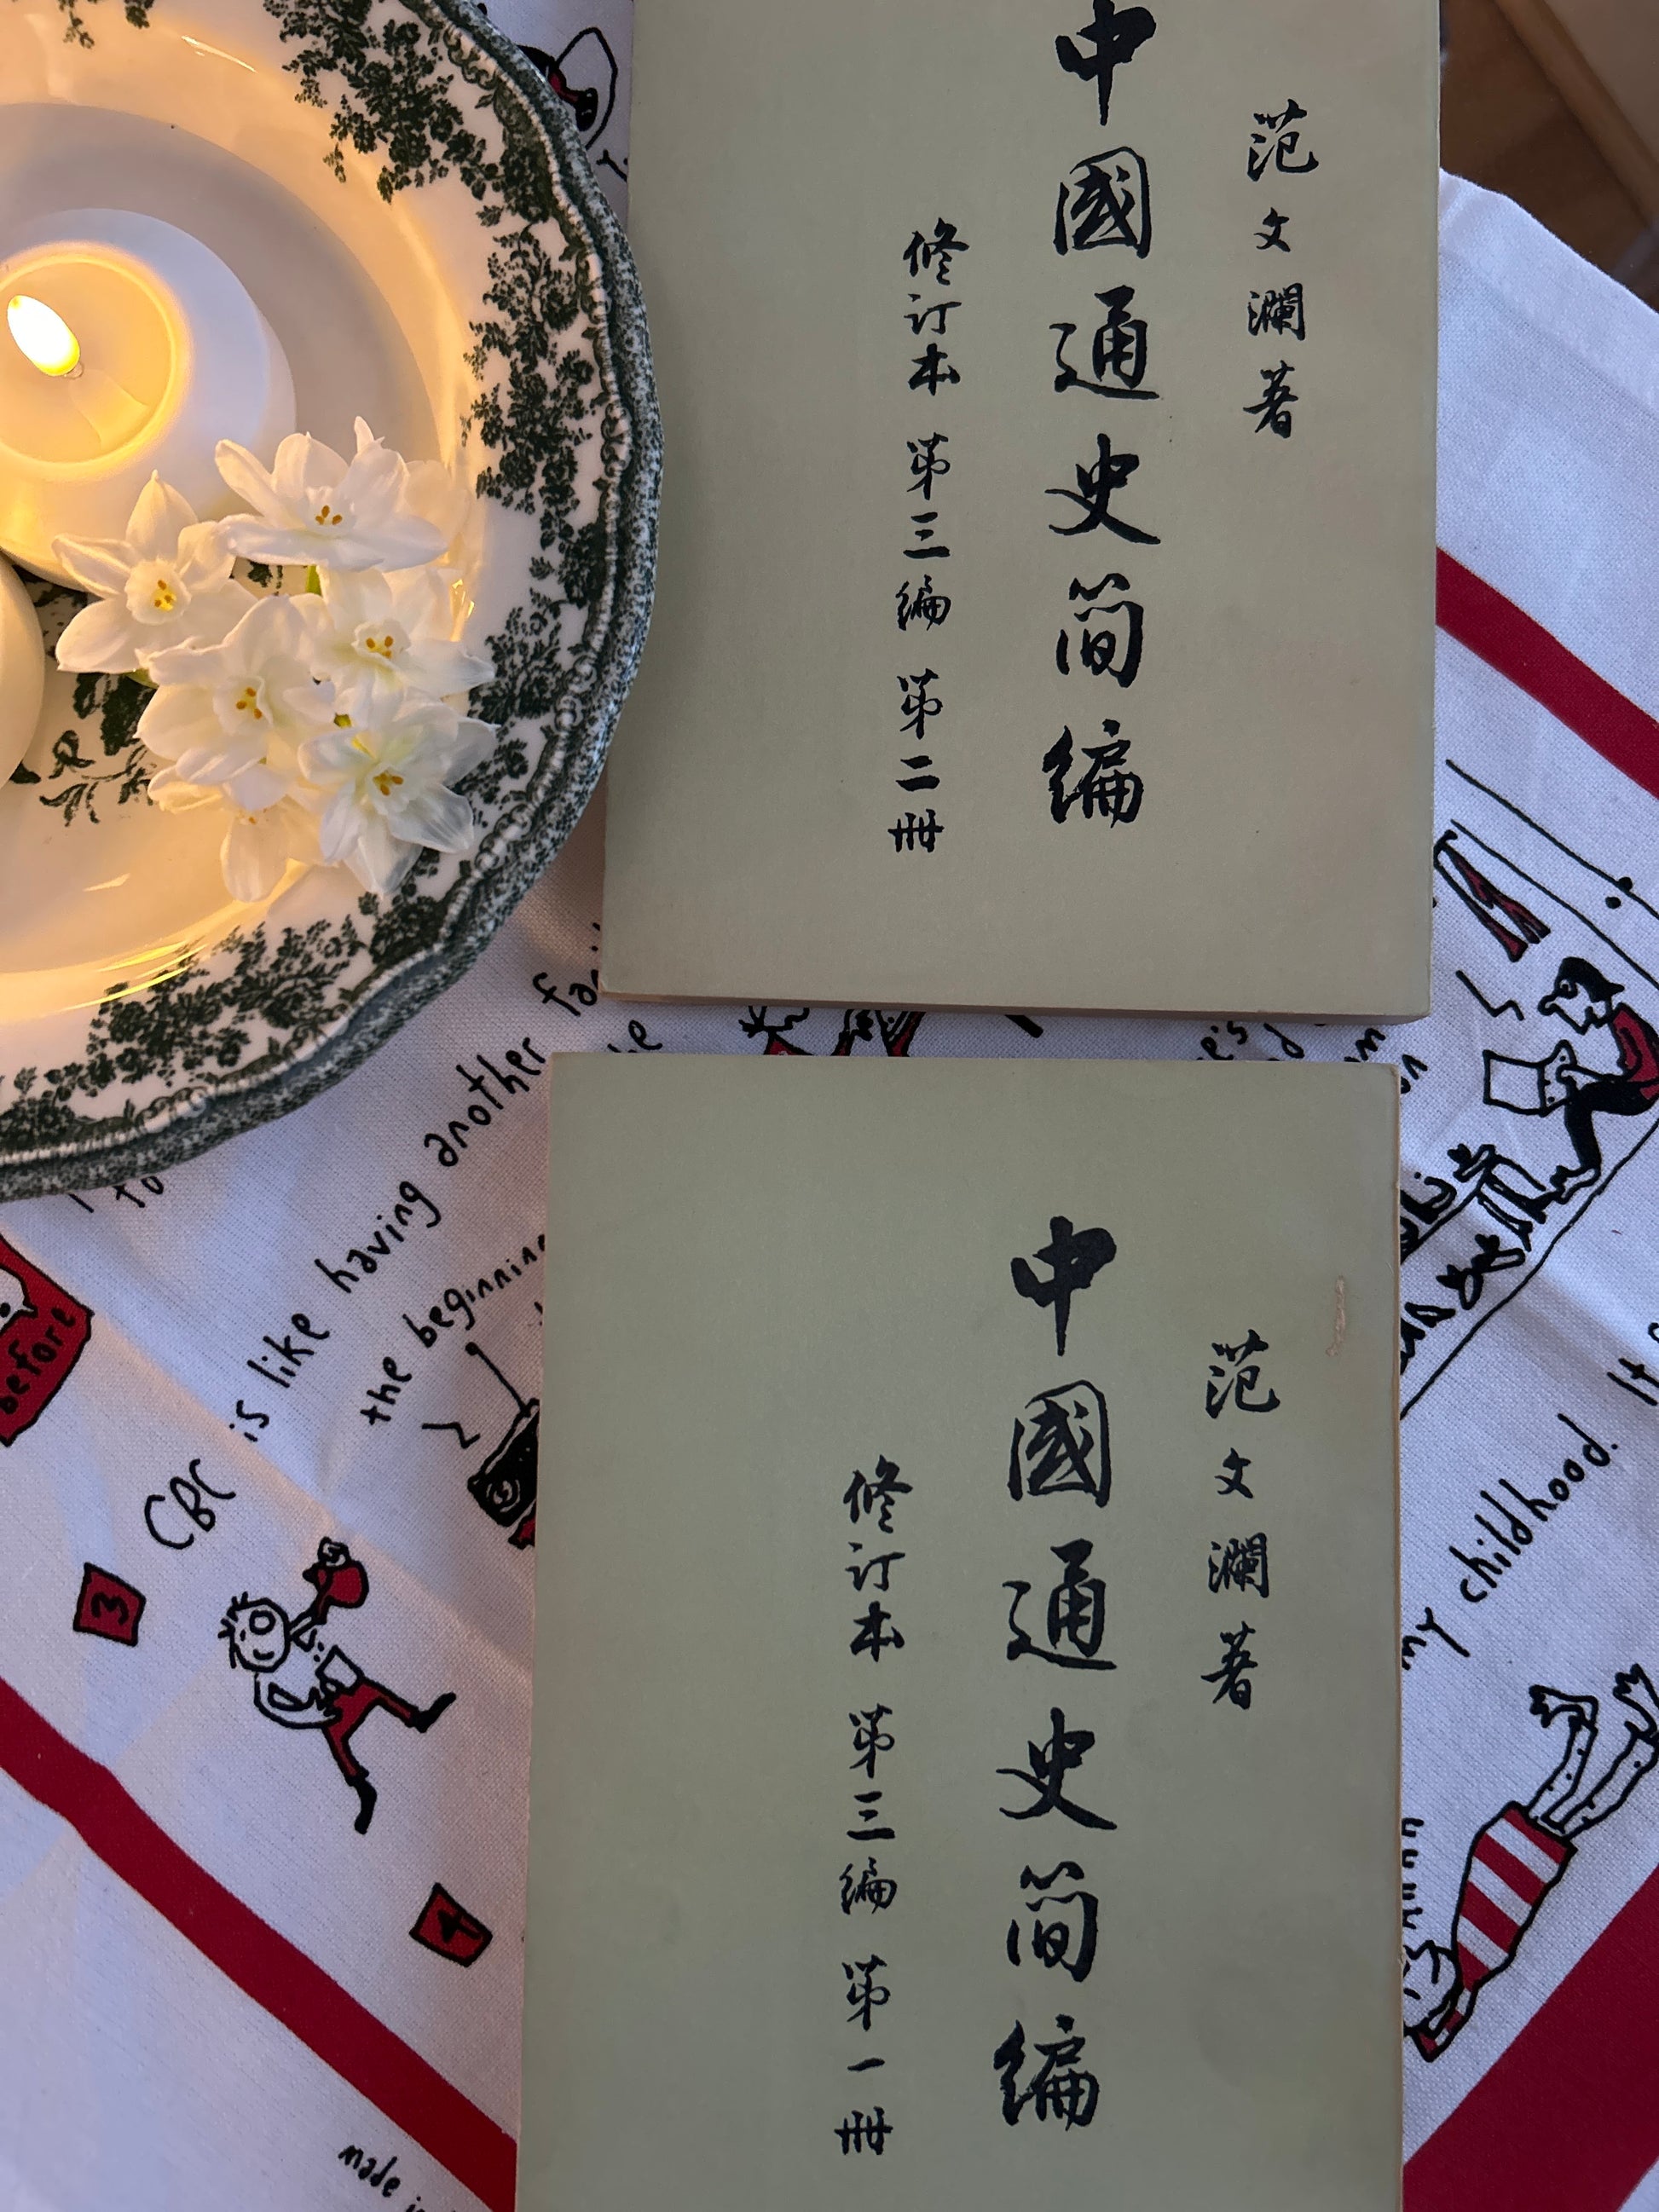 范文瀾著
中國通史简编
修订本 第三编 第二冊
范文瀾著
中國通史简编
修订本 第三编 第一冊
is like having another
the
CBC
before
3
4
my childhood.
It
made